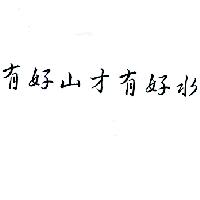 有好山才有好水